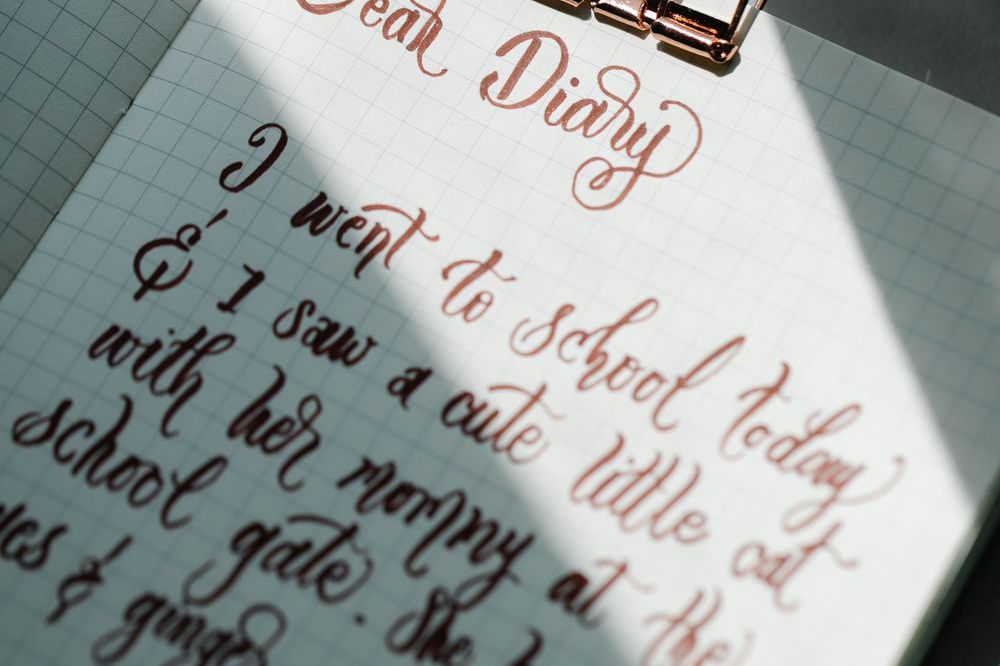 Dear Diary
I went to school today
& I saw a cute little cat
with her mommy at the
school gate. She
& ginger